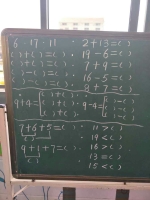 6 · 17 · 11
2 + 13 = ( )
( ) + ( ) = ( )
19 - 6 = ( )
( ) + ( ) = ( )
7 + 9 = ( )
( ) - ( ) = ( )
16 - 5 = ( )
( ) - ( ) = ( )
8 + 7 = ( )
9 + 4 =
( ) + ( )
( ) + ( )
( ) + ( )
9 - 4 =
( ) - ( )
( ) - ( )
( ) - ( )
7 + 6 + 5 = ( )
( )
11 > ( )
19 < ( )
9 + 1 + 7 = ( )
( )
16 > ( )
13 = ( )
15 < ( )